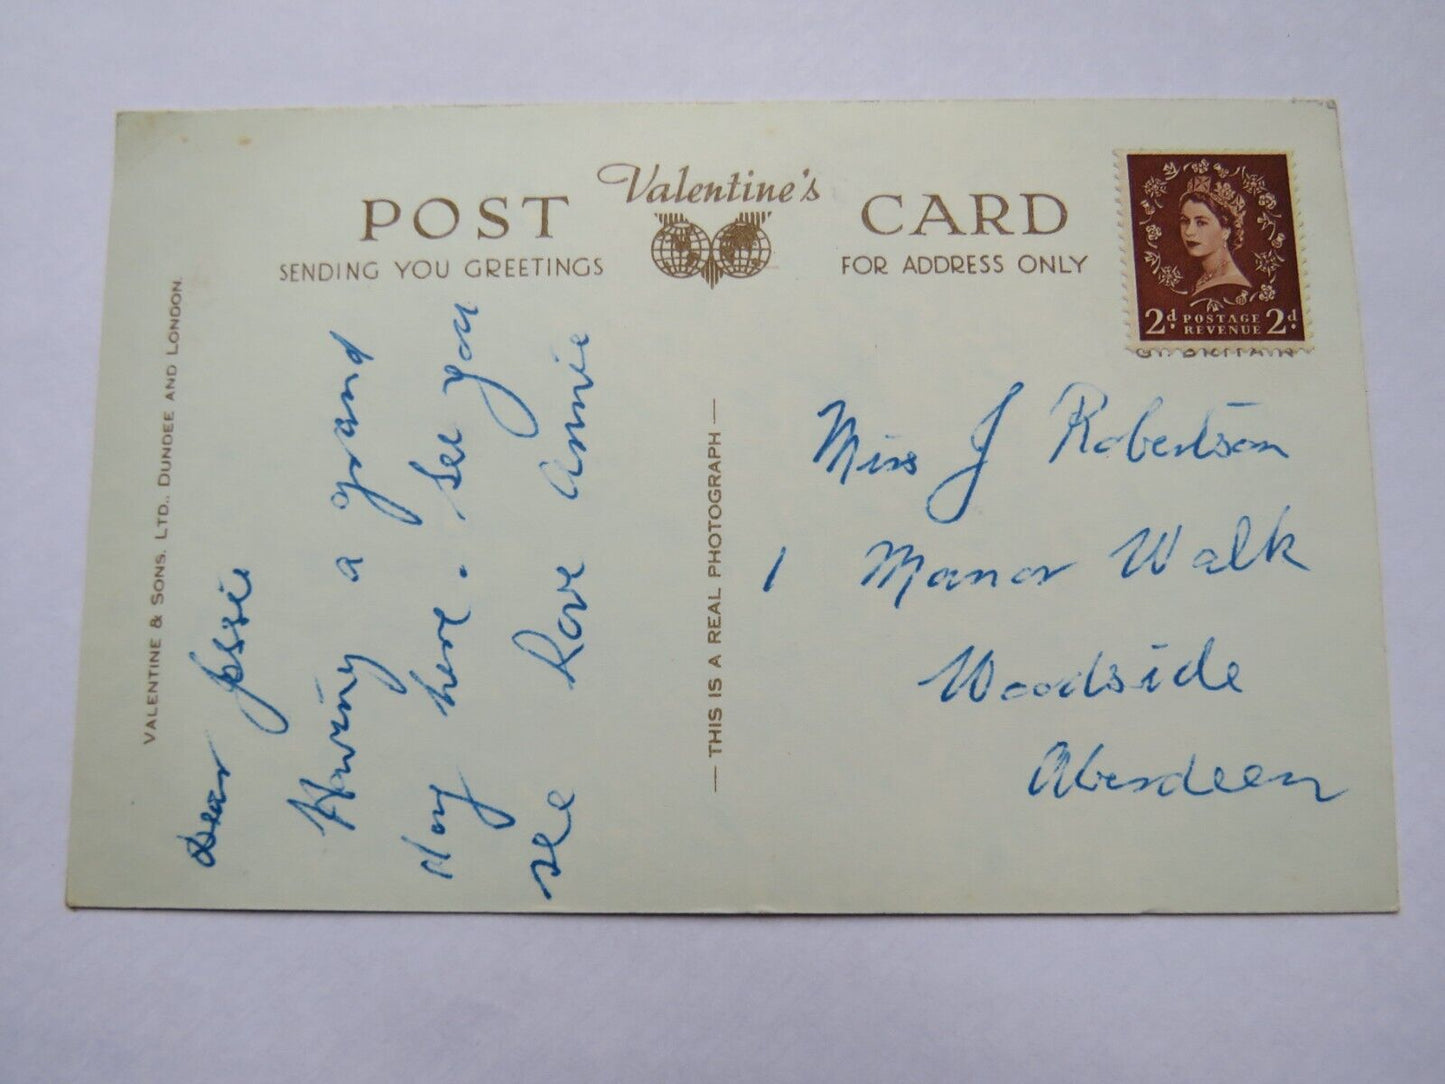 VALENTINE & SONS. LTD., DUNDEE AND LONDON.
POST Valentine's CARD
SENDING YOU GREETINGS
FOR ADDRESS ONLY
2d. POSTAGE REVENUE 2d.
Dear Jessie
Having a grand
day here. See you
Love Annie
— THIS IS A REAL PHOTOGRAPH —
Miss J Robertson
1 Manor Walk
Woodside
Aberdeen